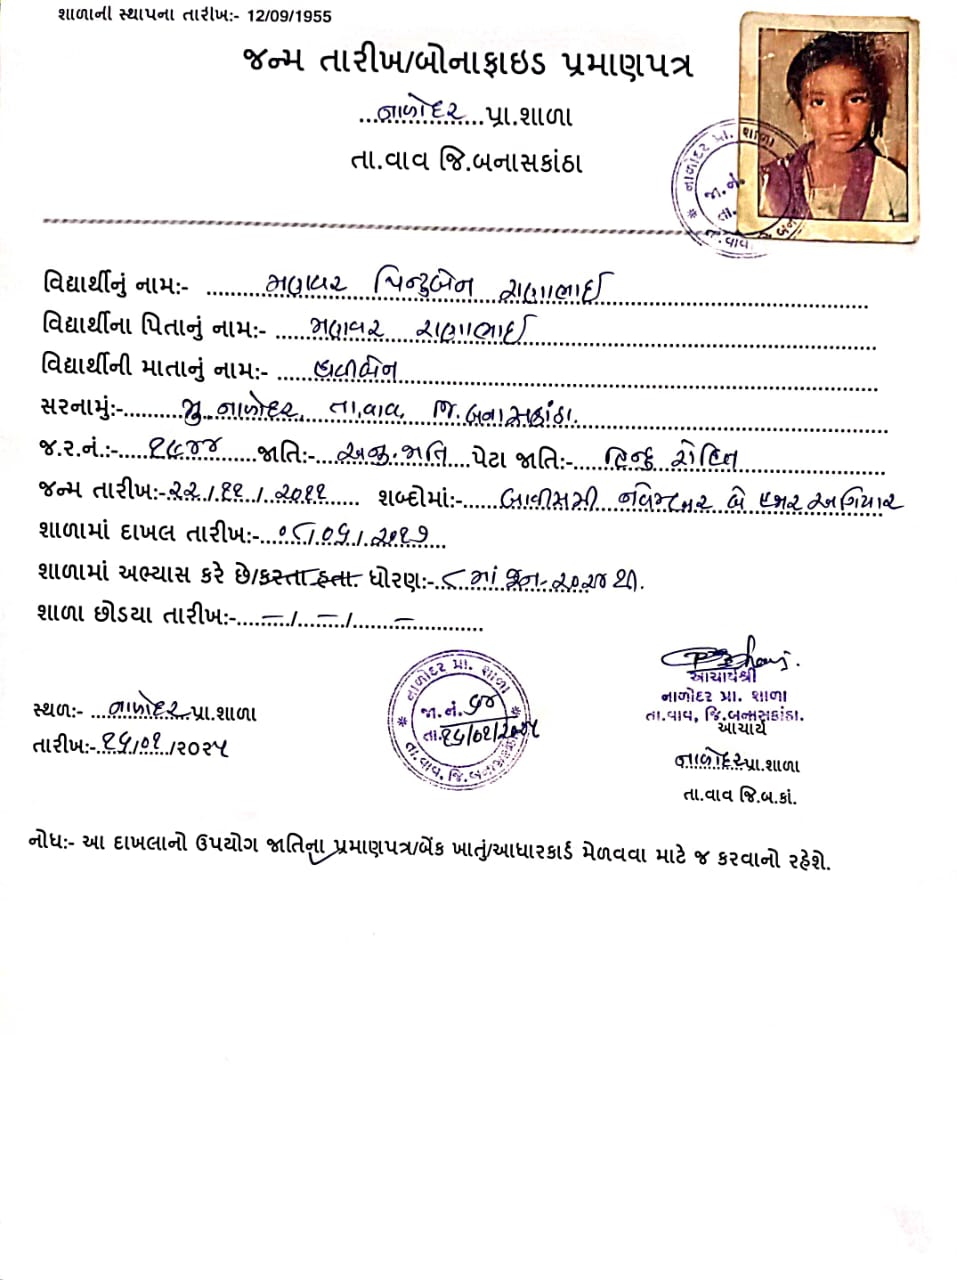 શાળાની સ્થાપના તારીખ:- 12/09/1955
જન્મ તારીખ/બોનાફાઇડ પ્રમાણપત્ર
...નાળોદર...પ્રા.શાળા
તા.વાવ જિ.બનાસકાંઠા
નાળોદર પ્રા. શાળા
જા.નં.
તા.
તા.વાવ
વિદ્યાર્થીનું નામ:- મણવર પિન્ટુબેન રાણાભાઈ
વિદ્યાર્થીના પિતાનું નામ:- મણવર રાણાભાઈ
વિદ્યાર્થીની માતાનું નામ:-
સરનામું:- મુ. નાળોદર, તા.વાવ, જિ.બનાસકાંઠા.
જ.ર.નં.:- ૧૯૪૪ જાતિ:- અનુ.જાતિ પેટા જાતિ:- હિન્દુ રોહિત
જન્મ તારીખ:- ૨૨/૧૧/૨૦૧૧ શબ્દોમાં:- બાવીસમી નવેમ્બર બે હજાર અગિયાર
શાળામાં દાખલ તારીખ:- ૦૮/૦૫/૨૦૧૭
શાળામાં અભ્યાસ કરે છે/કરતા હતા. ધોરણ:- ૮ માં જૂન-૨૦૨૪ થી.
શાળા છોડયા તારીખ:- –/–/–
નાળોદર પ્રા. શાળા
જા.નં. ૬૪
તા.૧૬/૦૧/૨૦૨૫
તા.વાવ, જિ.બનાસકાંઠા
આચાર્યશ્રી
નાળોદર પ્રા. શાળા
તા.વાવ, જિ.બનાસકાંઠા.
આચાર્ય
નાળોદર પ્રા.શાળા
તા.વાવ જિ.બ.કાં.
સ્થળ:- નાળોદર પ્રા.શાળા
તારીખ:- ૧૬/૦૧/૨૦૨૫
નોધ:- આ દાખલાનો ઉપયોગ જાતિના પ્રમાણપત્ર/બેંક ખાતું/આધારકાર્ડ મેળવવા માટે જ કરવાનો રહેશે.